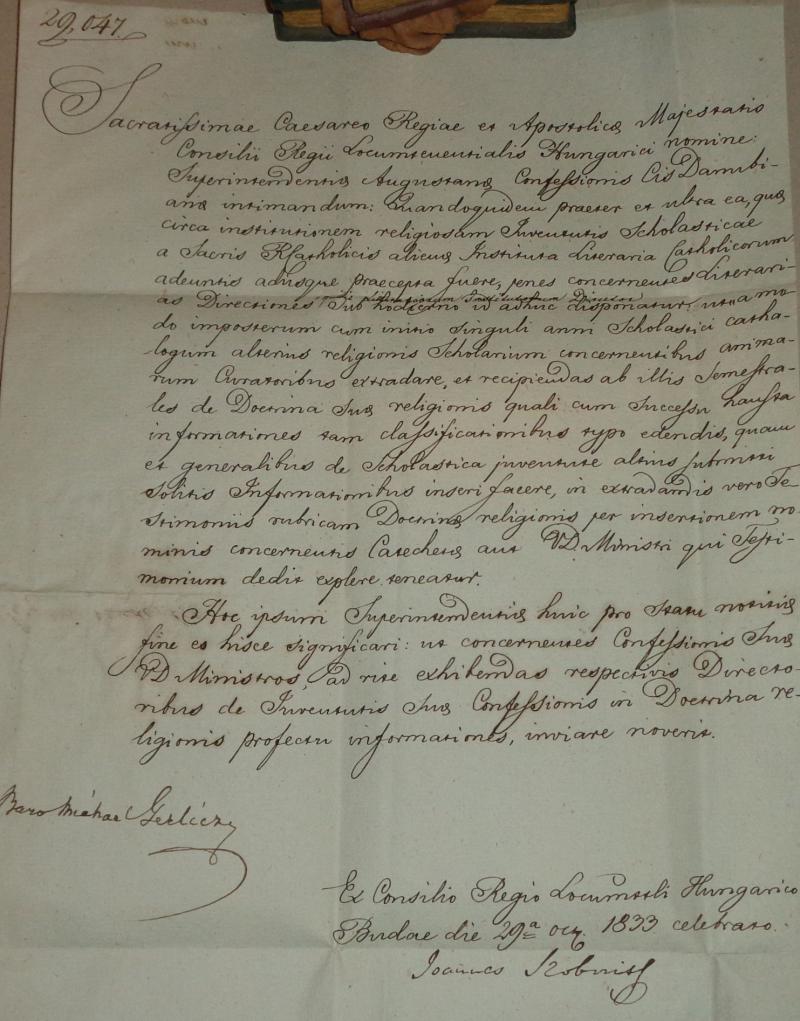 29,047.
Sacratissimae Caesareo Regiae et Apostolicae Majestatis
Consilii Regii Locumtenentialis Hungarici nomine:
Superintendentiae Augustanae Confessionis Cis Danubi-
anae intimandum: Quandoquidem praeter et ultra ea, quae
circa institutionem religiosam Juventutis Scholasticae
a Sacris Rcatholicis alienae Instituta Literaria Catholicorum
adeuntis adusque praecepta fuere, penes concernentes Literari-
as Directiones sub hodierno id adhuc disponatur, ut a mo-
do imposterum cum initio singuli anni Scholastici catha-
logum alterius religionis Scholarium concernentibus anima-
rum Curatoribus extradare, et recipiendas ab illis Semestra-
les de Doctrina Suae religionis quali cum Successu hausta
informationes tam classificationibus typo edendis, quam
et generalibus de Scholastica juventute altius submitti
solitis Informationibus inseri facere, in extradandis vero Te-
stimoniis rubricam Doctrinae religionis per insertionem no-
minis concernentis Catechetae aut VD Ministri qui Testi-
monium dedit explere teneatur.
Hoc ipsum Superintendentiae huic pro statu notitiae
fine eo hisce significari: ut concernentes Confessionis Suae
VD Ministros, ad rite exhibendas respectivis Directo-
ribus de Juventutis Suae Confessionis in Doctrina re-
ligionis profectu informationes, inviare noverit.
Baro
Ex Consilio Regio Locumttli Hungarico
Budae die 29a oct. 1833 celebrato.
Joannes